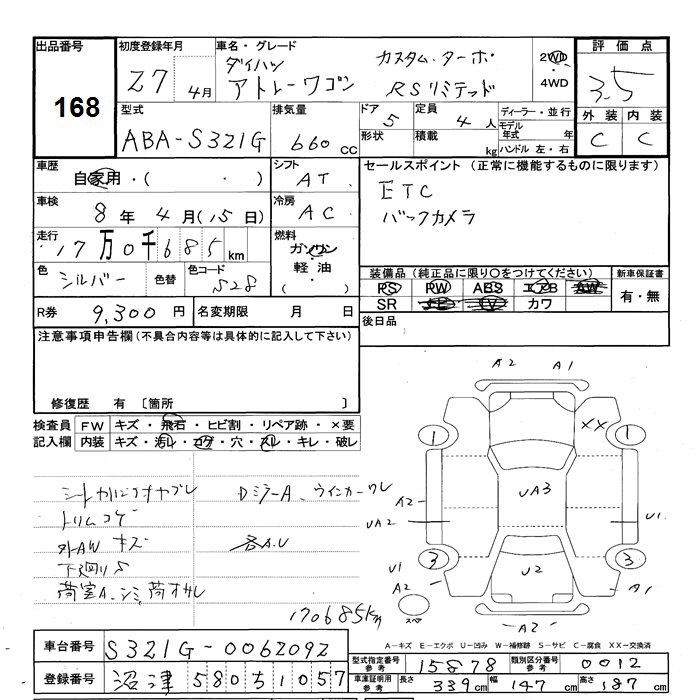 出品番号 初度登録年月 車名・グレード 評価点
168 27 4月 ダイハツ アトレーワゴン カスタムターボ RSリミテッド 2WD・4WD 3.5
型式 排気量 ドア 定員 ディーラー・並行 外装 内装
ABA-S321G 660cc 5 4人 モデル年式 年 C C
形状 積載 kg ハンドル 左・右
車歴 シフト セールスポイント(正常に機能するものに限ります)
自家用・( ・ ) AT ETC
車検 冷房 バックカメラ
8年4月(15日) AC
走行 燃料
17万0千685km ガソリン・軽油 ( ・ )
色 色替 色コード 装備品(純正品に限り○をつけてください) 新車保証書
シルバー S28 PS PW ABS エアB AW 有・無
SR カワ
R券 9,300円 名変期限 月 日 後日品
注意事項申告欄(不具合内容等は具体的に記入して下さい)
修復歴 有 〔箇所 〕
検査員 FW キズ・飛石・ヒビ割・リペア跡・×要
記入欄 内装 キズ・汚レ・コゲ・穴・スレ・キレ・破レ
A2 A1
XX
1 1
UA3
A2
UA2 U1
3 3
U2
U1
A2 A1
スペ
A2
DミラーA、ウインカーワレ
トリムコゲ
外AW キズ 各A.U
170685km
A-キズ E-エクボ U-凹み W-補修跡 S-サビ C-腐食 XX-交換済
車台番号 S321G-0062092
型式指定番号 参考 15878 類別区分番号 参考 0012
登録番号 沼津 580 5 1057
車庫証明用 参考 長さ 339cm 幅 147cm 高さ 187cm